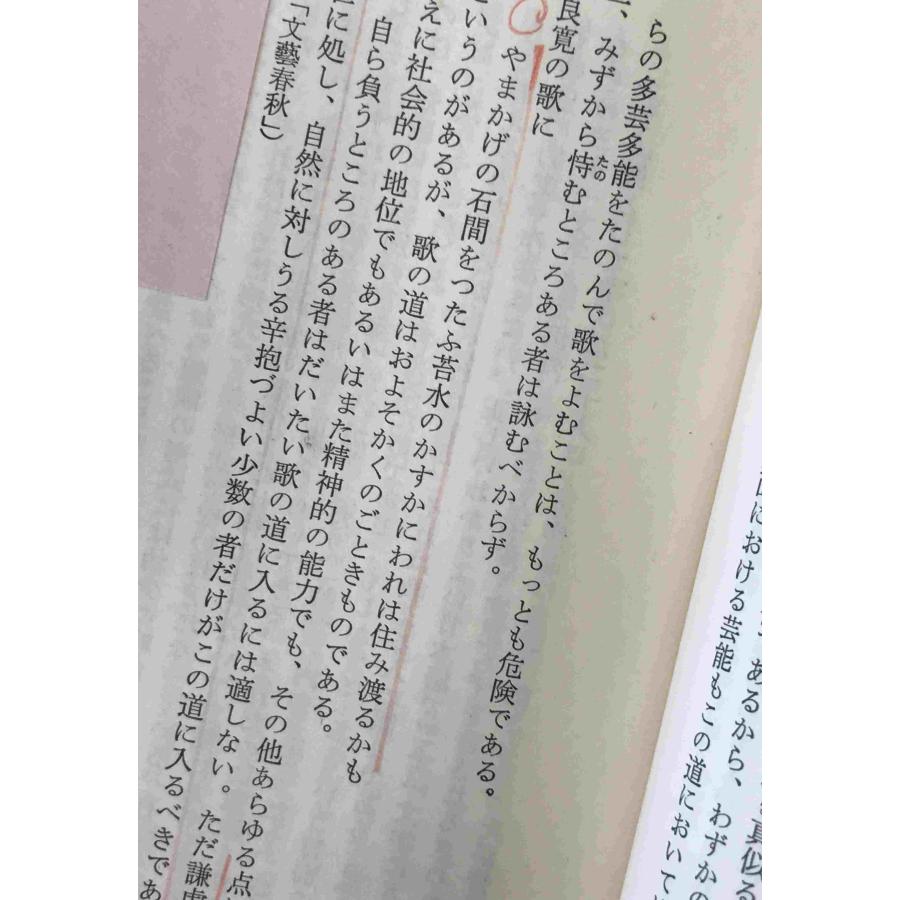 あるから、わずかの
における芸能もこの道において
らの多芸多能をたのんで歌をよむことは、もっとも危険である。
一、みずから恃むところある者は詠むべからず。
たの
良寛の歌に
やまかげの石間をつたふ苔水のかすかにわれは住み渡るかも
というのがあるが、歌の道はおよそかくのごときものである。
えに社会的の地位でもあるいはまた精神的の能力でも、その他あらゆる点
自ら負うところのある者はだいたい歌の道に入るには適しない。ただ謙虚
に処し、自然に対しうる辛抱づよい少数の者だけがこの道に入るべきであ
「文藝春秋」)